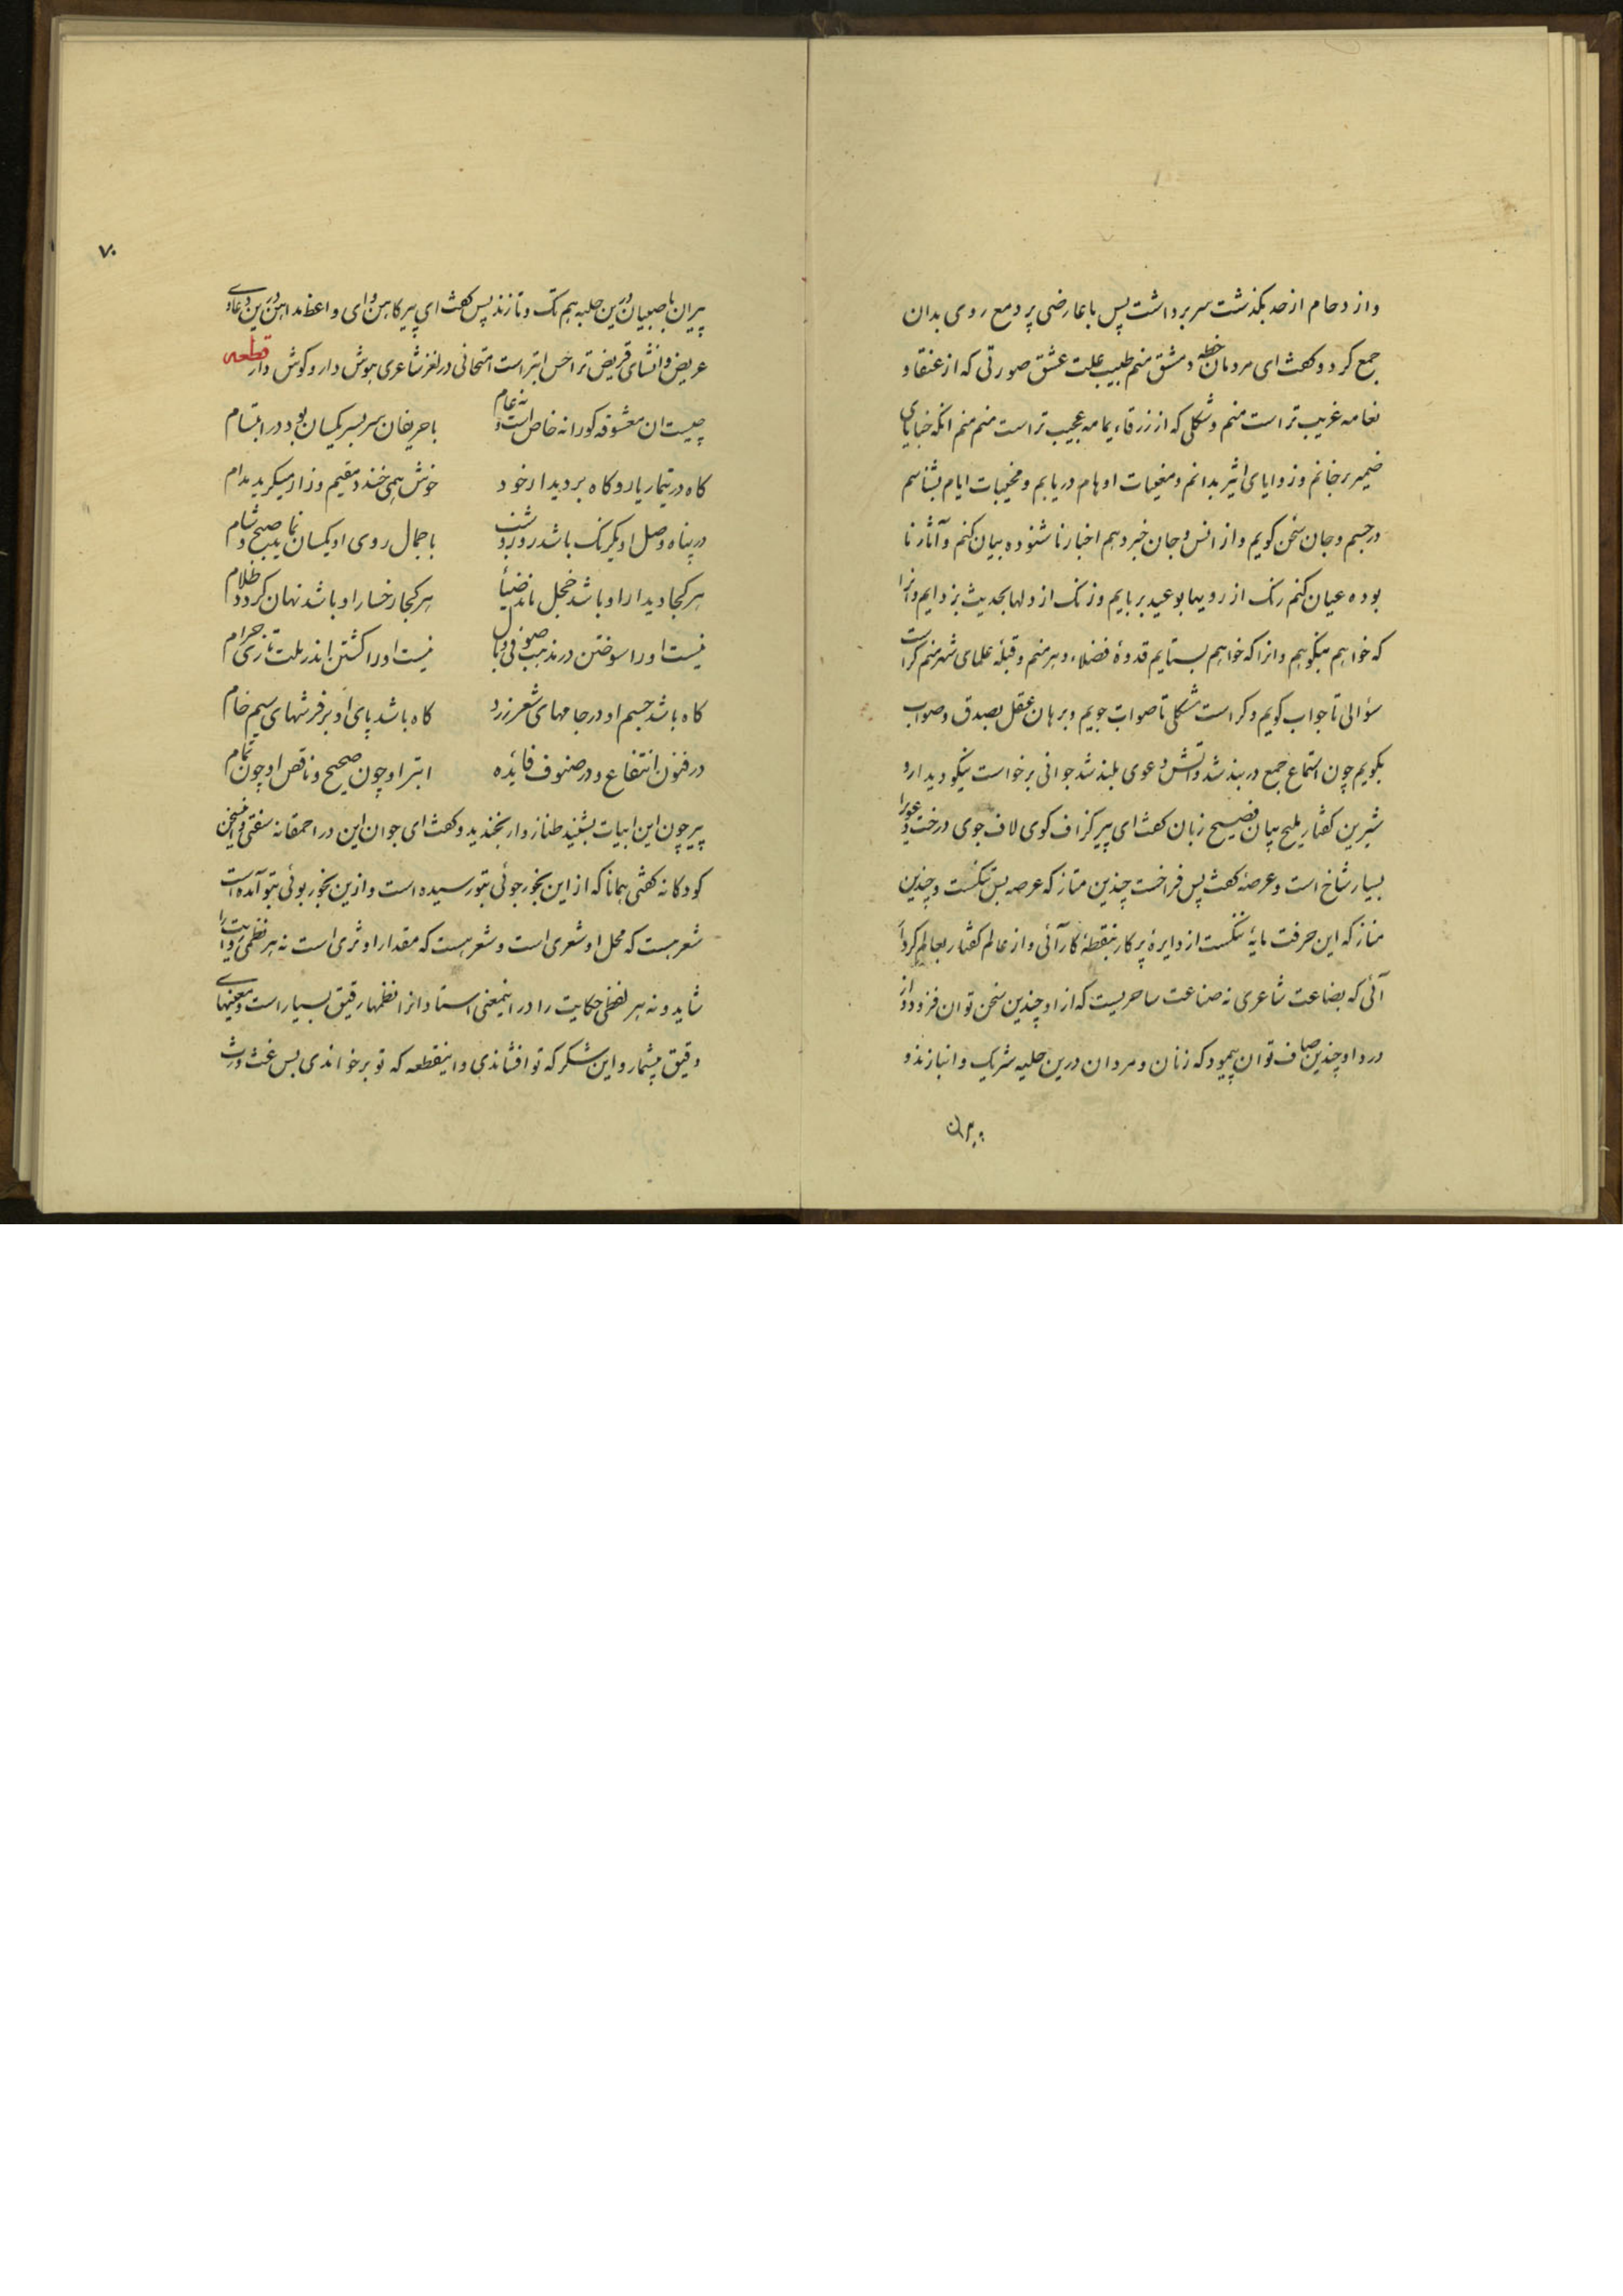 واز دحام از حد بگذشت سر برداشت پس با عارضی پر دمع روی بدان
جمع کرد و گفت ای مردمان خطه دمشق منم طبیب علت عشق صورتی که از عنقا و
نعامه غریب تر است منم و شکلی که از زرقاء یمامه عجیب تر است منم منم انکه خبایای
ضمیر برخانم و زوایای اثیر بدانم و مغیبات اوهام دریابم و مخیبات ایام بشناسم
در جسم و جان سخن کویم و از انس و جان خبر دهم اخبار ناشنوده بیان کنم و آثار نا
بوده عیان کنم رنک از رویها بوعید بربایم و زنک از دلها بحدیث بزدایم و انرا
که خواهم بنکوهم و انرا که خواهم بستایم قدوهٔ فضلاء دهر منم و قبلهٔ علمای شهر منم کراست
سؤالی تا جواب کویم و کراست مشکلی تا صواب جویم و برهان عقل بصدق و صواب
بگویم چون استماع جمع در بند شد و آتش دعوی بلند شد جوانی برخاست نیکو دیدار و
شیرین کفتار ملیح بیان فصیح زبان کفت ای پیر کزاف کوی لاف جوی درخت دعوی را
بسیار شاخ است و عرصهٔ کفت پس فراخست چندین متاز که عرصه بس تنکست و چندین
مناز که این حرفت مایهٔ ننکست از دایرهٔ پرکار بنقطهٔ کار آئی و از عالم کفتار بعالم کردار
آئی که بضاعت شاعری نه صناعت ساحریست که از او چندین سخن توان فزود و از
درد او چندین صاف توان پیمود که زنان و مردان درین حلبه شریک و انبازند و
پیران
۷۰
پیران با صبیان درین حلبه هم تک و تازند پس کفت ای پیر کاهن و ای واعظ مداهن درین دعاوی
عریض و انشای قریض ترا حس ابتر است امتحانی در لغز شاعری بهوش دار و کوش دار قطعه
چیست ان معشوقه کو را نه خاص است و نه عام با حریفان سر بسر یکسان بود در ابتسام
کاه در تیمار یار و کاه بر دیدار خود خوش همی خندد مقیم و زار میکرید مدام
در پناه وصل او یکرنک باشد روز و شب با جمال روی او یکسان نماید صبح و شام
هر کجا دیدار او باشد خجل ماند ضیا هر کجا رخسار او باشد نهان کردد ظلام
نیست او را سوختن در مذهب صوفی وبال نیست او را کشتن اندر ملت تازی حرام
کاه باشد جسم او در جامهای شعر زرد کاه باشد پای او بر فرشهای سیم خام
در فنون انتفاع و در صنوف فائده ابتر او چون صحیح و ناقص او چون تمام
پیر چون این ابیات بشنید طناز وار بخندید و کفت ای جوان این در احمقانه سفتی و این سخن
کودکانه کفتی همانا که از این بخور جوئی بتو رسیده است و ازین بخور بوئی بتو آمده است
شعر هست که محل او شعری است و شعر هست که مقدار او ثری است نه هر نظمی روایت را
شاید و نه هر لفظی حکایت را در اینمعنی استادانرا نظمها رقیق بسیار است و معنیهای
دقیق بیشمار و این شکر که تو افشاندی و اینقطعه که تو برخواندی بس غث و رث